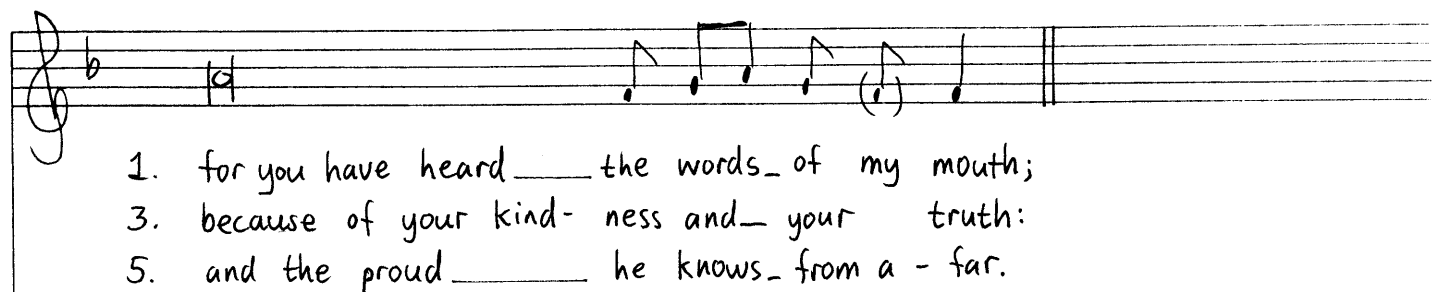 1. for you have heard____ the words_ of my mouth;
3. because of your kind- ness and_ your truth:
5. and the proud______ he knows_ from a - far.